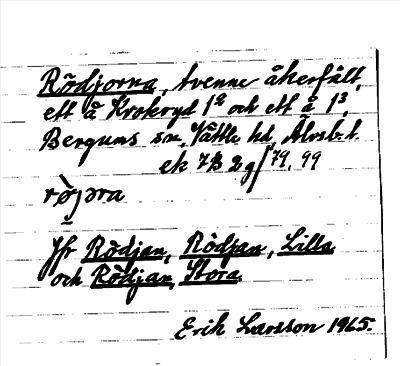 Rödjorna, tvenne åkerfält,
ett å Krokryd 1² och ett å 1³,
Bergums sn, Vättle hd, Älvsb. l.
ek 7B 2g/79, 99
Jfr Rödjan, Rödjan, Lilla
och Rödjan, Stora.
Erik Larsson 1965.